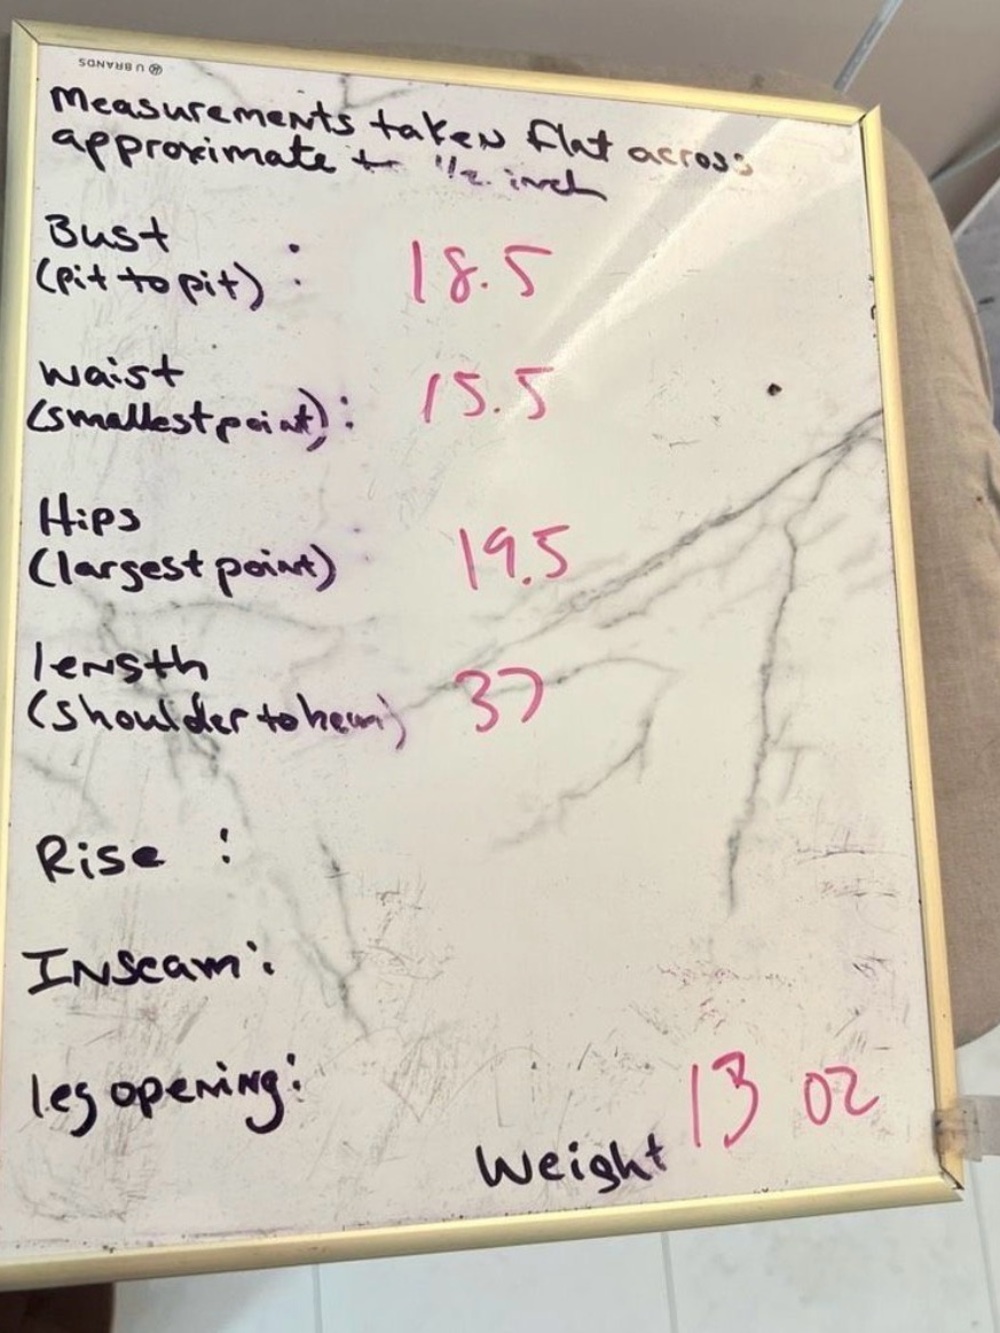 U BRANDS
Measurements taken flat across
approximate to 1/2 inch
Bust
(pit to pit) : 18.5
waist
(smallest point): 15.5
Hips
(largest point) 19.5
length
(shoulder to hem) 37
Rise :
Inseam:
leg opening:
Weight 13 oz